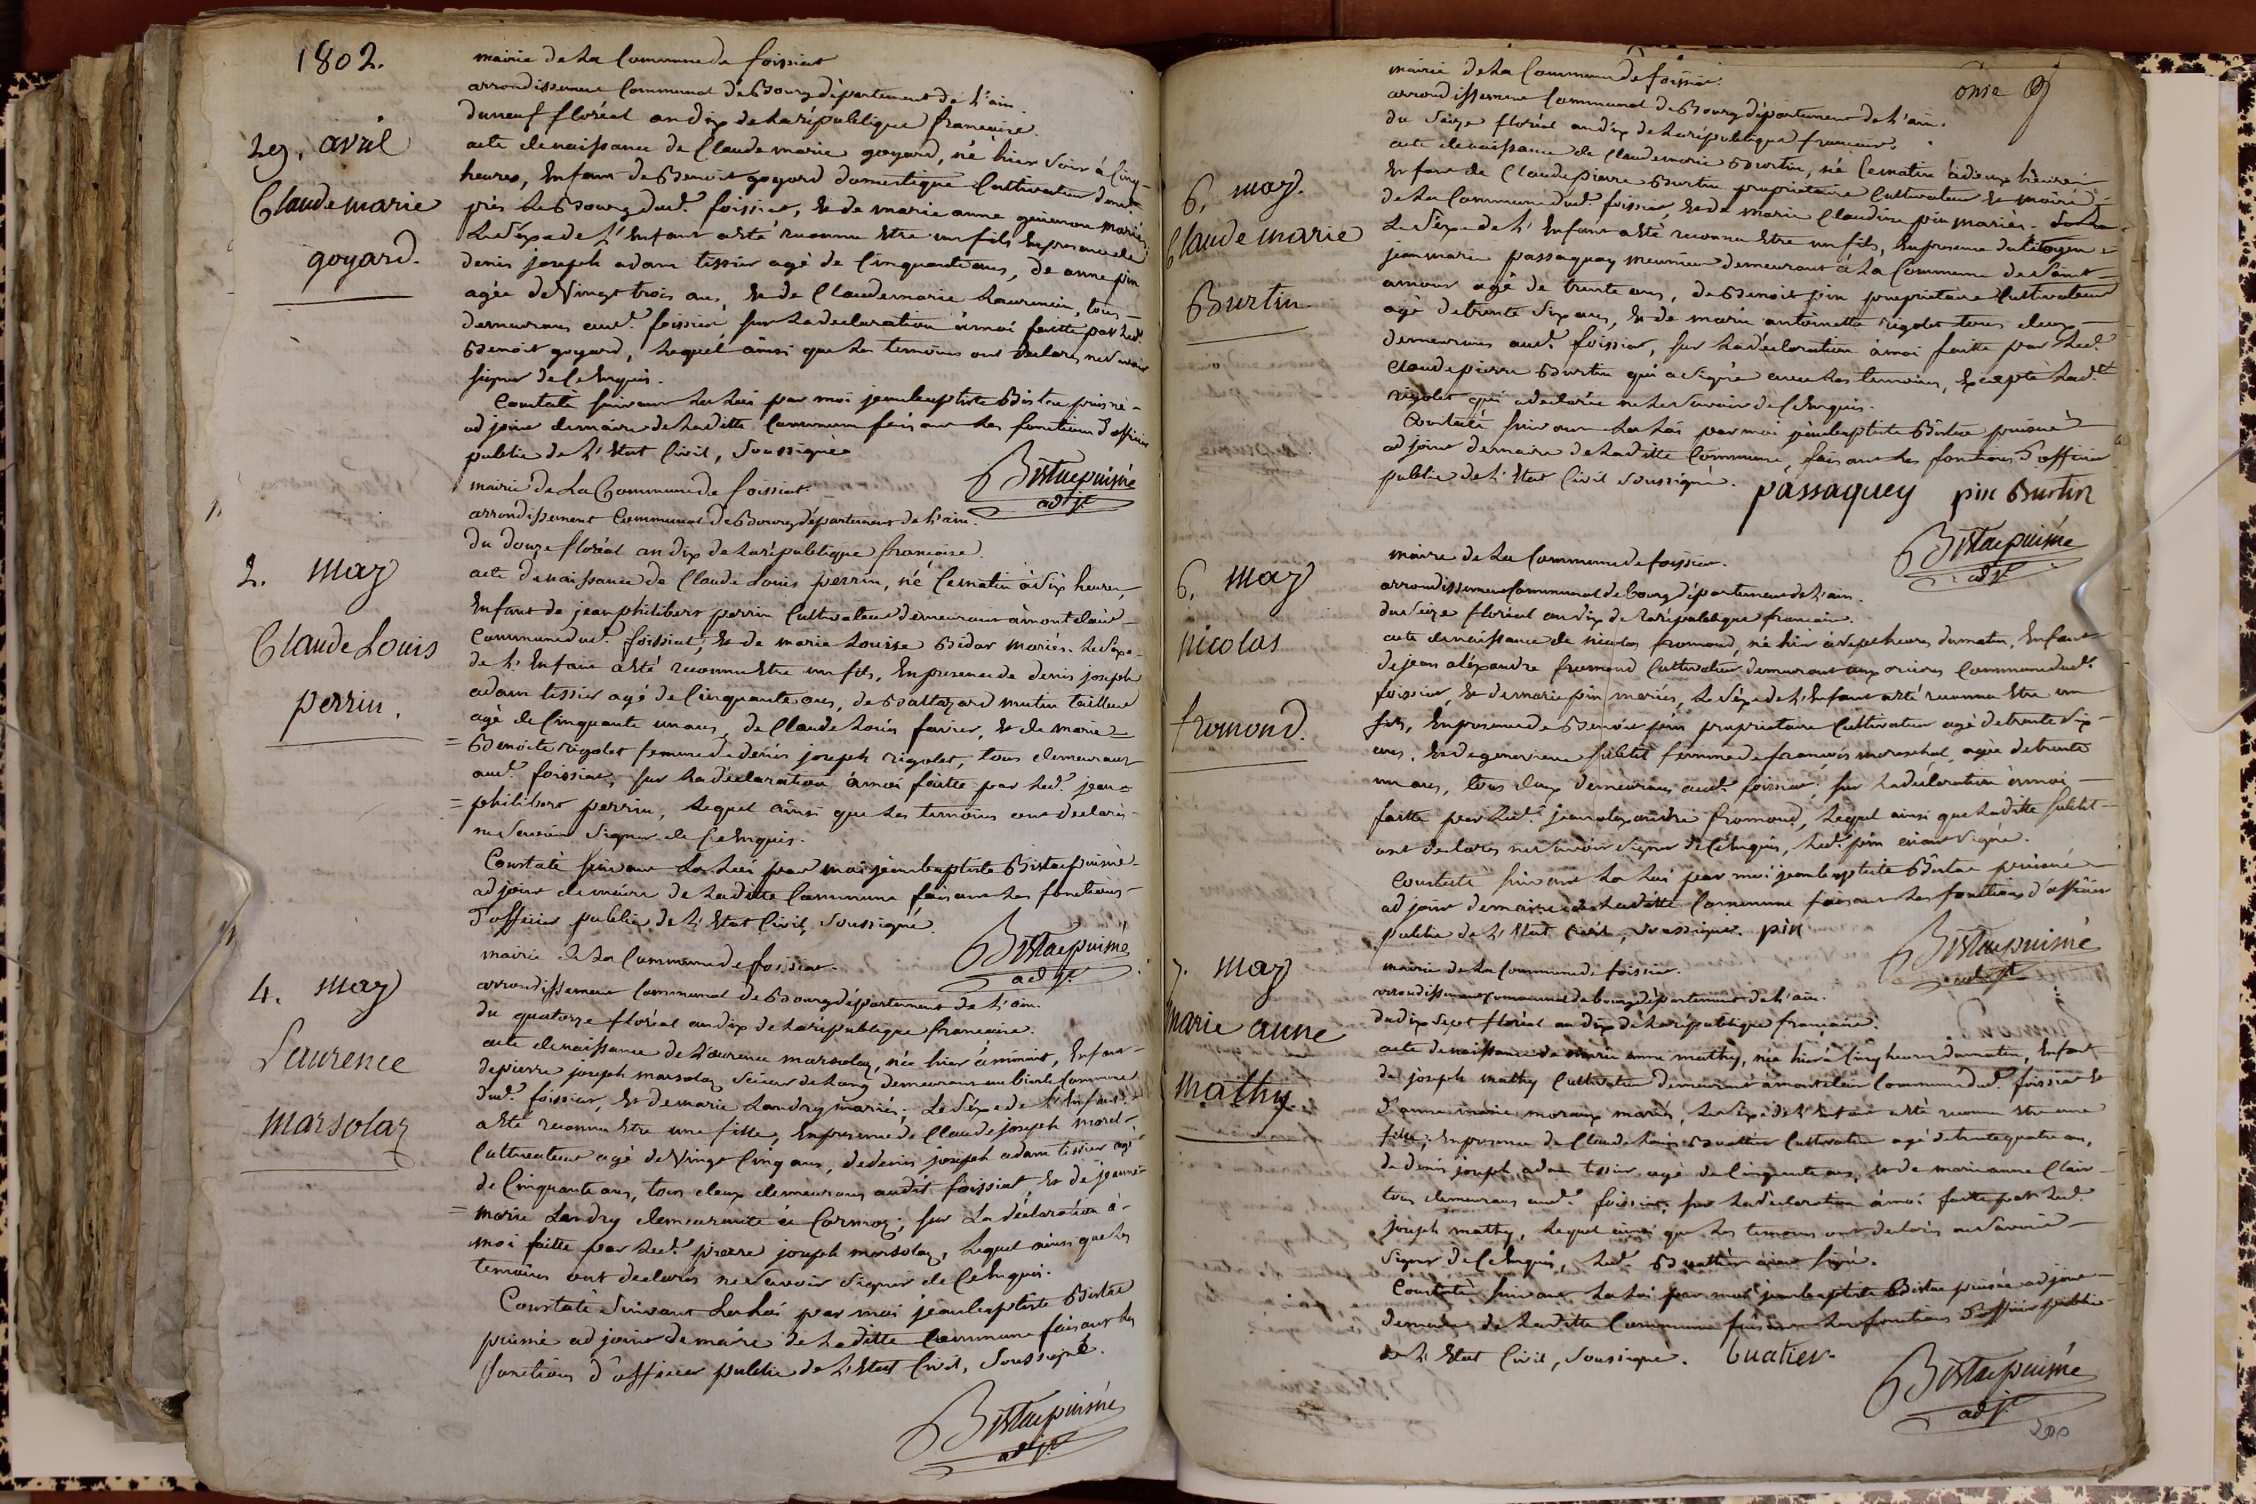 1802.
mairie de La Commune de foissiat
arrondissement Communal de Bourg département de L'ain.
du neuf floréal an dix de La république francaise.
29. avril
acte de naissance de Claude marie goyard, né hier soir à Cinq
heures, Enfant de Benoit goyard domestique Cultivateur dem.t
Claude marie
près Le Bourg dud.t foissiat, Et de marie anne mariés.
goyard.
Le séxe de L'Enfant a été reconnu Etre un fils, En presence de
denis joseph adam tissier agé de Cinquante ans, de anne pin
agée de vingt trois ans, Et de Claudemarie Laurencin, tous
demeurans aud.t foissiat sur La déclaration à moi faitte par Led.t
Benoit goyard, Lequel ainsi que Les temoins ont declarés ne savoir
signer de Ce Enquis.
Constaté suivant La Loi par moi jeanbaptiste Bistac puisné
adjoint de maire de Laditte Commune faisant Les fonctions d'officier
public de L'Etat Civil, Soussigné
Bistac puisné
adj.t
mairie de La Commune de foissiat.
arrondissement Communal de Bourg département de L'ain.
du douze floréal an dix de La république francaise.
2. may
acte de naissance de Claude Louis perrin, né Ce matin à dix heures,
Enfant de jean philibert perrin Cultivateur demeurant à montclair
Claude Louis
Commune dud.t foissiat, Et de marie Louise Bidar mariés. Le Séxe
de L'Enfant a Eté reconnu Etre un fils, En presence de denis joseph
perrin.
adam tissier agé de Cinquante ans, de Baltazard mutin tailleur
agé de Cinquante un ans, de Claude Louis favier, Et de marie
= Benoite rigolet femme de denis joseph rigolet, tous demeurans
aud.t foissiat, sur La déclaration à moi faitte par Led.t jean =
= philibert perrin, Lequel ainsi que Les temoins ont declarés
ne Savoir Signer de Ce Enquis.
Constaté suivant La Loi par moi jeanbaptiste Bistac puisné
adjoint de maire de Laditte Commune faisant Les fonctions
d'officier public de L'Etat Civil, soussigné.
Bistac puisné
adj.t
mairie de La Commune de foissiat.
arrondissement Communal de Bourg département de L'ain.
4. may
du quatorze floréal an dix de La république francaise.
acte de naissance de Laurence marsolaz, née hier à minuit, Enfant
Laurence
de pierre joseph marsolaz Scieur de Long demeurant au Commune
dud.t foissiat, Et de marie Landry mariés. Le Séxe de L'Enfant
marsolaz
a Eté reconnu Etre une fille, En presence de Claude joseph morel
Cultivateur agé de Vingt Cinq ans, de denis joseph adam tissier agé
de Cinquante ans, tous deux demeurans audit foissiat Et de jeanne
= marie Landry demeurante à Cormoz; sur La déclaration à
moi faitte par Led.t pierre joseph marsolaz, Lequel ainsi que Les
temoins ont declarés ne Savoir signer de Ce Enquis.
Constaté suivant La Loi par moi jeanbaptiste Bistac
puisné adjoint de maire de Laditte Commune faisant Les
fonctions d'officier public de L'Etat Civil, Soussigné.
Bistac puisné
adj.t
onse
mairie de La Commune de foissiat.
arrondissement Communal de Bourg département de L'ain.
du Seize floréal an dix de La république francaise.
6. may.
acte de naissance de Claude marie Burtin, né Ce matin à deux heures
Enfant de Claude pierre Burtin propriétaire Cultivateur Et maire
Claude marie
de La Commune dud.t foissiat, Et de marie Claudine pin mariés.
Le Séxe de L'Enfant a Eté reconnu Etre un fils, En presence du Citoyen
Burtin.
jean marie passaquay meunier demeurant à La Commune de Saint
amour agé de trente ans, de Benoit pin propriétaire Cultivateur
agé de trente Six ans, Et de marie antoinette rigolet tous deux
demeurans aud.t foissiat, sur La déclaration à moi faitte par Led.t
Claude pierre Burtin qui a signé avec Les temoins, Excepté Lad.te
rigolet qui a declarée ne Le Savoir de Ce Enquis.
Constaté suivant La Loi par moi jeanbaptiste Bistac puisné
adjoint de maire de Laditte Commune, faisant Les fonctions d'officier
public de L'Etat Civil Soussigné. passaquey pin Burtin
Bistac puisné
adj.t
mairie de La Commune de foissiat.
6. may
arrondissement Communal de bourg département de L'ain.
du Seize floréal an dix de La république francaise.
nicolas
acte de naissance de nicolas fromond, né hier à sept heures du matin, Enfant
de jean aléxandre fromond Cultivateur demeurant aux Commune dud.t
foissiat, Et de marie pin mariés, Le Séxe de L'Enfant a été reconnu Etre un
fromond.
fils, En presence de Benoit pin propriétaire Cultivateur agé de trente Six
ans, Et de genevieve femme de francois marechal, agée de trente
un ans, tous deux demeurans aud.t foissiat sur La déclaration à moi
faitte par Led.t jean aléxandre fromond, Lequel ainsi que Laditte
ont declarés ne Savoir signer de Ce Enquis, Led.t pin aiant signé.
Constaté suivant La Loi par moi jeanbaptiste Bistac puisné
adjoint de maire de Laditte Commune faisant Les fonctions d'officier
public de L'Etat Civil, Soussigné. pin
Bistac puisné
adj.t
mairie de La Commune de foissiat.
7. may
arrondissement Communal de bourg département de L'ain.
du dix Sept floréal an dix de La république francaise.
marie anne
acte de naissance de marie anne mathy, née hier à Cinq heures du matin, Enfant
de joseph mathy Cultivateur demeurant à montclair Commune dud.t foissiat Et
mathy
d'anne marie moraux mariés, Le Séxe de L'Enfant a été reconnu Etre une
fille; En presence de Claude Louis Buattier Cultivateur agé de trente quatre ans,
de denis joseph adam tissier agé de Cinquante ans, Et de marianne Clair
tous demeurans aud.t foissiat, sur La déclaration à moi faitte par Led.t
joseph mathy, Lequel ainsi que Les temoins ont declarés ne Savoir
Signer de Ce Enquis, Led.t Buattier aiant signé.
Constaté suivant La Loi par moi jeanbaptiste Bistac puisné adjoint
de maire de Laditte Commune faisant Les fonctions d'officier public
de L'Etat Civil, Soussigné. buatier
Bistac puisné
adj.t
200